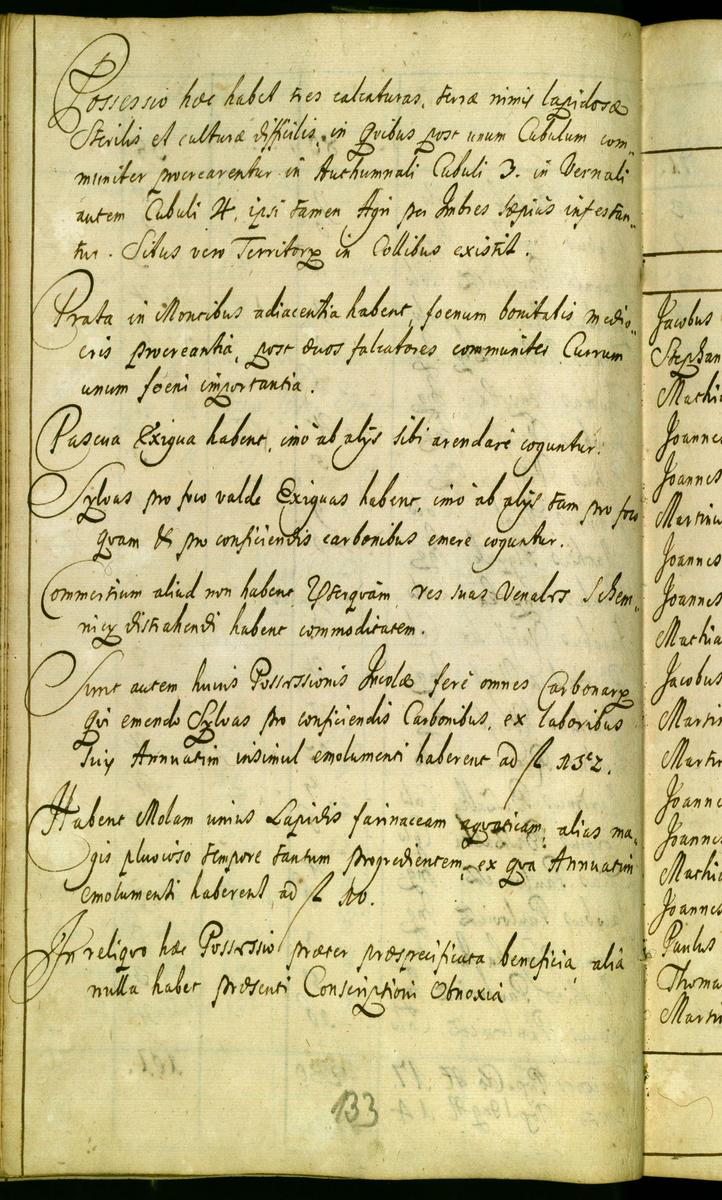 Possessio hæc habet tres calcaturas, terræ nimis lapidosæ
Sterilis et culturæ difficilis, in qvibus post unum Cubulum com„
muniter procrearentur in Authumnali Cubuli 3. in Vernali
autem Cubuli 4, ipsi tamen Agri per Imbres sæpius infestan„
tur. Situs vero Territory in Collibus existit.
Prata in Montibus adiacentia habent, foenum bonitatis medio„
cris procreantia, post duos falcatores communiter Currum
unum foeni importantia.
Pascua Exigua habent, imò ab alys sibi arendare coguntur.
Sylvas pro foco valde Exiguas habent, imò ab alys tam pro foco
qvam & pro conficiendis carbonibus emere coguntur.
Commertium aliud non habent, res suas Venales Schem„
nicy distrahendi habent commoditatem.
Sunt autem huius Possessionis Incolæ ferè omnes Carbonary
qvi emendo Sylvas pro conficiendis Carbonibus, ex laboribus
suis Annuatim insimul emolumenti haberent ad fl
Habent Molam unius Lapidis farinaceam aqvaticam, alias ma„
gis pluvioso tempore tantum progredientem, ex qva Annuatim
emolumenti haberent ad fl 10.
In reliqvo hæc Possessio præter præspecificata beneficia, alia
nulla habet præsenti Conscriptioni Obnoxia
133
Jacobus
Stephan
Mathi
Joannes
Joannes
Martinu
Joannes
Joannes
Mathia
Jacobus
Martin
Martin
Joanne
Joannes
Mathi
Joannes
Paulus
Thoma
Martin